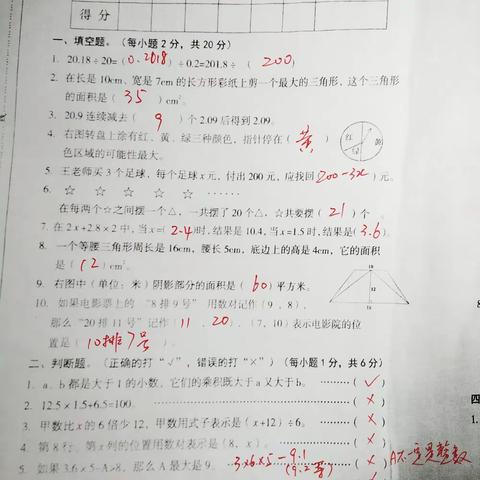 得 分
一、填空题。(每小题 2 分，共 20 分)
1. 20.18÷20=(0.2018)÷0.2=201.8÷(200)
2. 在长是 10cm、宽是 7cm 的长方形彩纸上剪一个最大的三角形，这个三角形
的面积是(35)cm²。
3. 20.9 连续减去(9)个 2.09 后得到 2.09。
4. 右图转盘上涂有红、黄、绿三种颜色，指针停在(黄)
色区域的可能性最大。
红 黄 绿
5. 王老师买 3 个足球，每个足球 x 元，付出 200 元，应找回(200-3x)元。
6. ☆ ☆ ☆ ☆ ☆ ……
在每两个☆之间摆一个△，一共摆了 20 个△，☆共要摆(21)个
7. 在 2x+2.8×2 中，当 x=(2.4)时，结果是 10.4，当 x=1.5 时，结果是(3.6)
8. 一个等腰三角形周长是 16cm，腰长 5cm，底边上的高是 4cm，它的面积
是(12)cm²。
9. 右图中(单位：米)阴影部分的面积是(60)平方米。
10
12
10. 如果电影票上的“8 排 9 号”用数对记作(9，8)，
那么“20 排 11 号”记作(11，20)，(7，10)表示电影院的位
置是(10排7号)。
二、判断题。(正确的打“√”，错误的打“×”)(每小题 1 分，共 6 分)
1. a、b 都是大于 1 的小数，它们的乘积既大于 a 又大于 b。 ……(√)
2. 12.5×1.5+6.5=100。 ……(×)
3. 甲数比 x 的 6 倍少 12，甲数用式子表示是(x+12)÷6。 ……(×)
4. 第 8 行、第 x 列的位置用数对表示是(8，x)。 ……(×)
5. 如果 3.6×5-A>8，那么 A 最大是 9。 ……(×)
A不一定是整数
8.
9.
四
1.